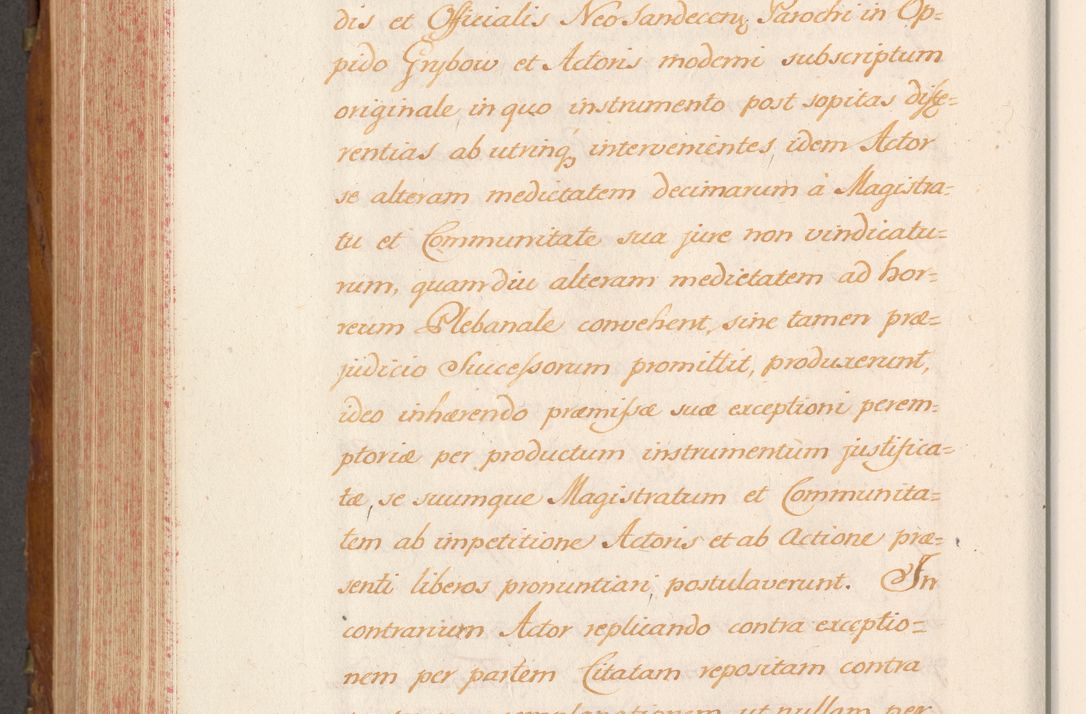 dis et Officialis NeoSandecen Parochi in Op=
pido Grybow et Actoris moderni subscriptum
originale in quo instrumento post sopitas diffe=
rentias ab utrinq intervenientes idem Actor
se alteram medietatem decimarum à Magistra=
tu et Communitate sua jure non vindicatu=
rum, quamdiu alteram medietatem ad hor=
reum Plebanale convehent, sine tamen præ=
judicio Successorum promittit, produxerunt,
ideo inhærendo præmissæ suæ exceptioni perem=
ptoriæ per productum instrumentum justifica=
tæ, se suumque Magistratum et Communita=
tem ab impetitione Actoris et ab Actione præ=
senti liberos pronuntiari postulaverunt. In
contrarium Actor replicando contra exceptio=
nem per partem Citatam repositam contra
ut nullam per